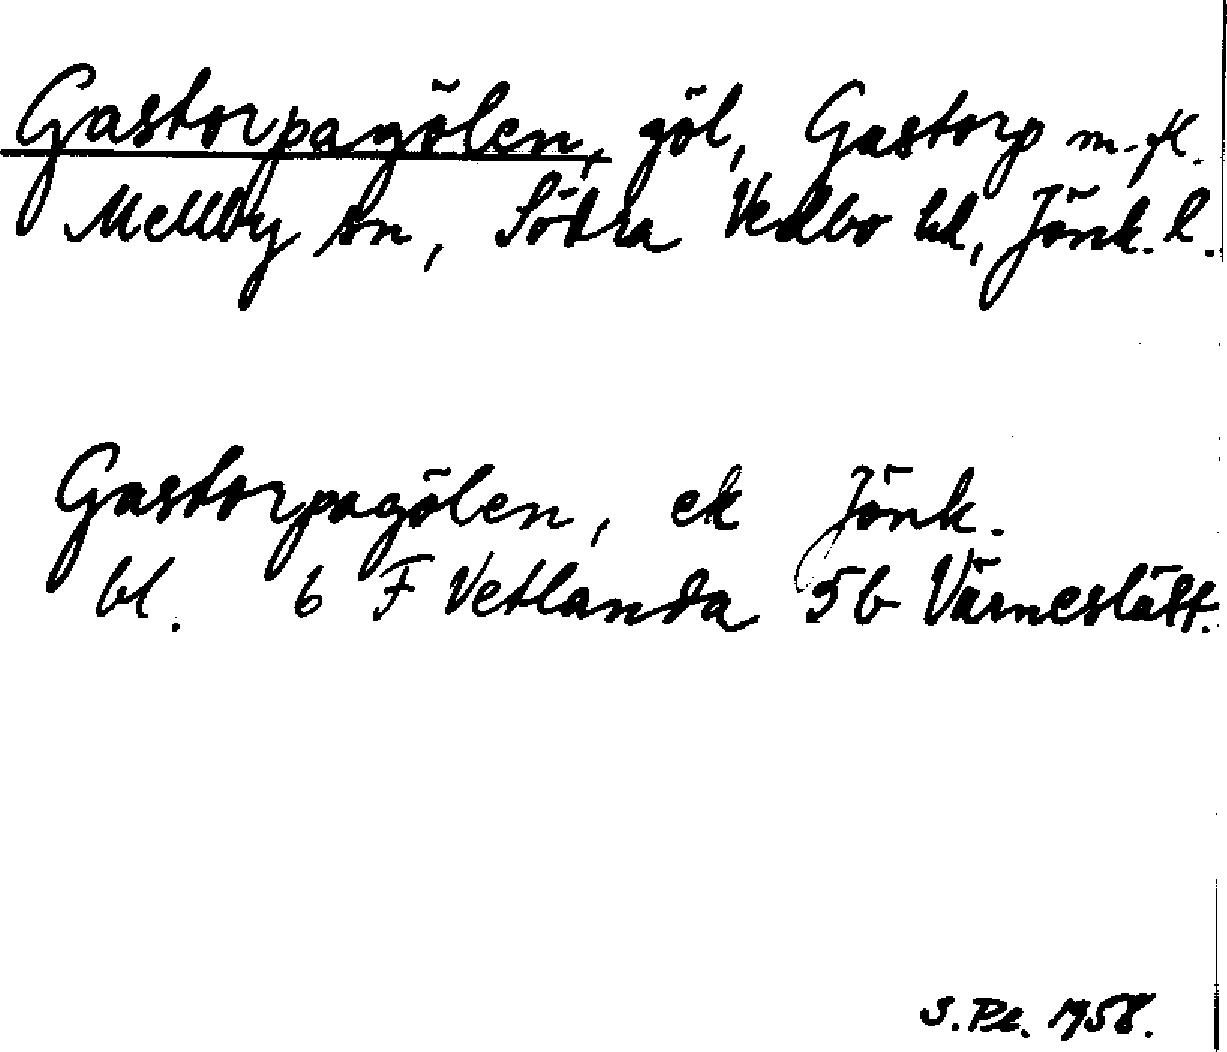 Gastorpagölen, göl, Gastorp m.fl.
Mellby sn, Södra Vedbo hd, Jönk. l.
Gastorpagölen, ek Jönk.
bl. 6 F Vetlanda 5b Värneslätt.
S. Pl. 1958.